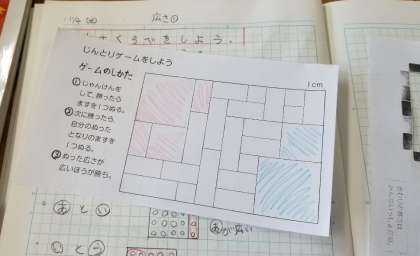 11/4 (火) 広さ①
くらべをしよう。
じんとりゲームをしよう
ゲームのしかた
1cm
①じゃんけんを
して、勝ったら
ますを1つぬる。
②次に勝ったら、
自分のぬった
となりのますを
1つぬる。
③ぬった広さが
広いほうが勝ち。
・あとい
あが広い
・いとう